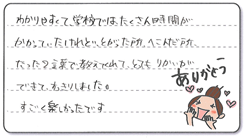 わかりやすくて、学校ではたくさん時間が
かかっていたけれど、とがった所、へこんだ所、
たった3言葉で教えてくれて、とてもりかいが
できて、すっきりしました。
すごく楽しかったです
ありがとう